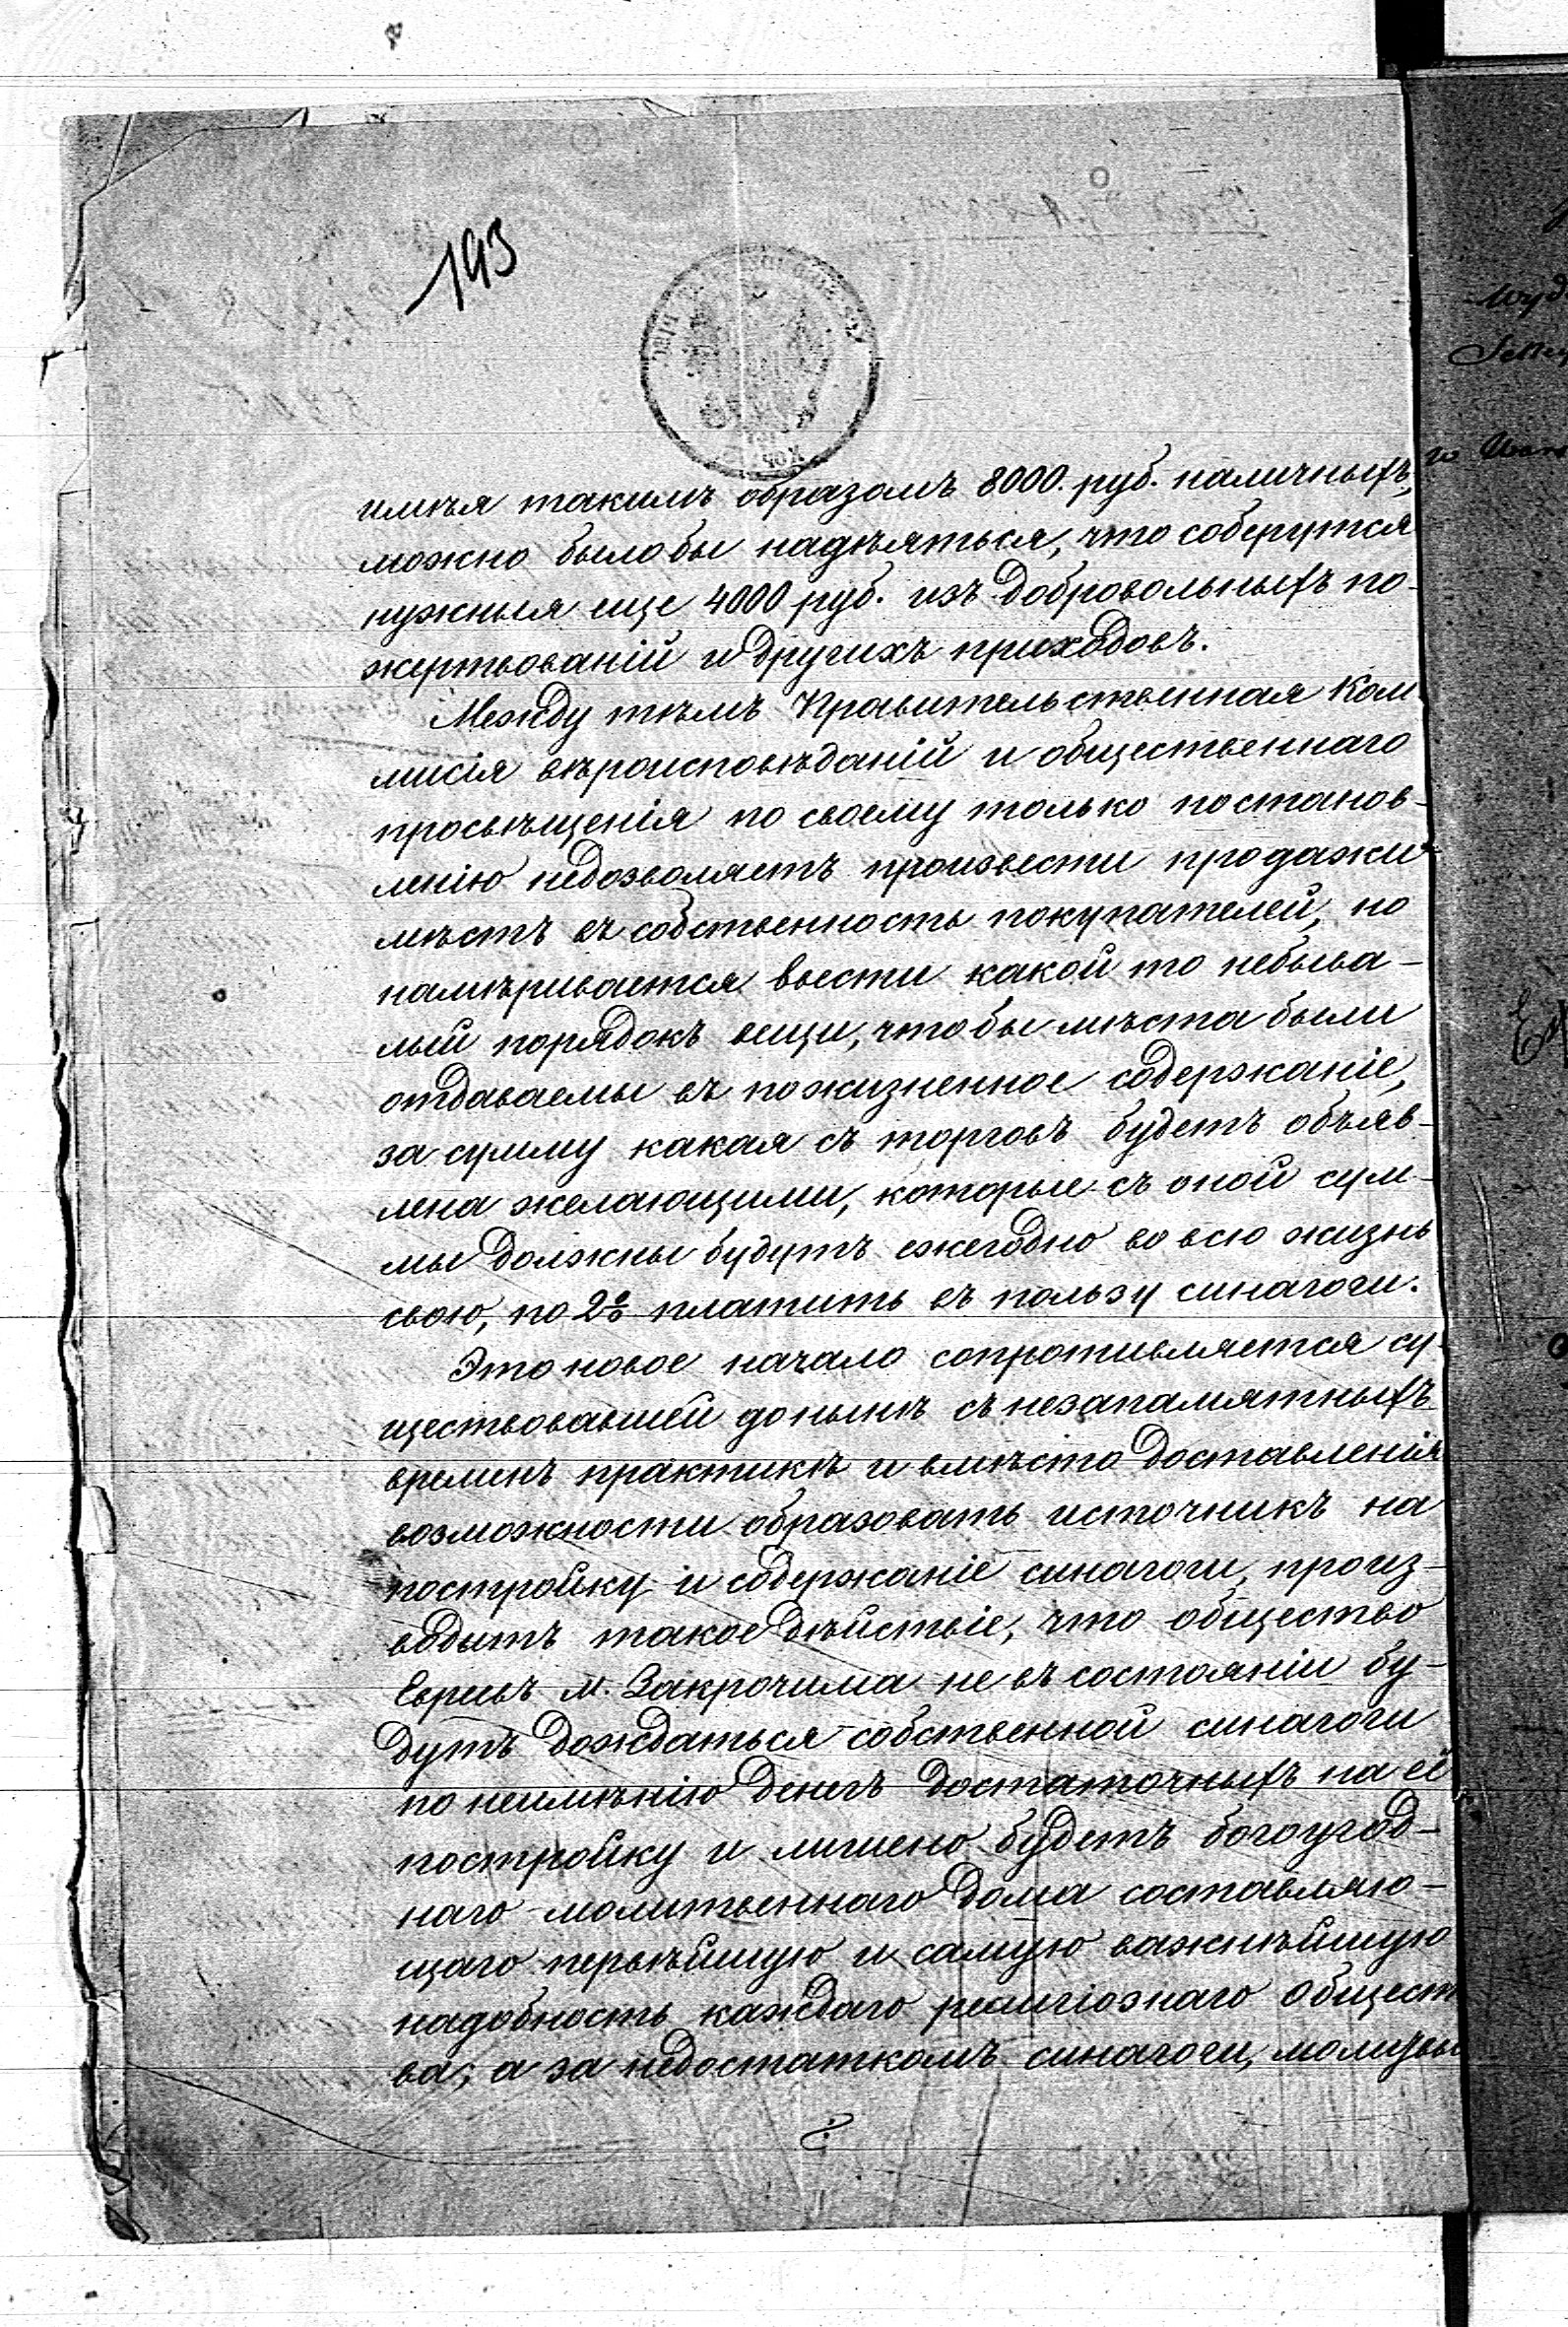 193
имѣя такимъ образомъ 8000. руб. наличныхъ,
можно было бы надѣяться, что соберутся
нужныя еще 4000 руб. изъ добровольныхъ по-
жертвованій и другихъ приходовъ.
Между тѣмъ Правительственная Ком
мисія вѣроисповѣданій и общественнаго
просвѣщенія по своему только постанов-
ленію недозволяетъ произвести продажи
мѣстъ въ собственность покупателей, но
намѣривается ввести какой то небыва-
лый порядокъ вещи, чтобы мѣста были
отдаваемы въ пожизненное содержаніе,
за сумму какая съ торговъ будетъ объяв-
лена желающими, которые съ оной сум-
мы должны будутъ ежегодно во всю жизнь
свою, по 2% платить въ пользу синагоги.
Это новое начало сопротивляется су-
ществовавшей донынѣ съ незапамятныхъ
временъ практикѣ и вмѣсто доставленія
возможности образовать источникъ на
постройку и содержаніе синагоги, произ-
водитъ такое дѣйствіе, что общество
Евреевъ м. Закрочима не въ состояніи бу-
дутъ дождаться собственной синагоги
по неимѣнію денегъ достаточныхъ на её
постройку и лишено будетъ богоугод-
наго молитвеннаго дома составляю-
щаго первѣйшую и самую важнѣйшую
надобность каждаго религіознаго Общест
ва, а за недостаткомъ синагоги,